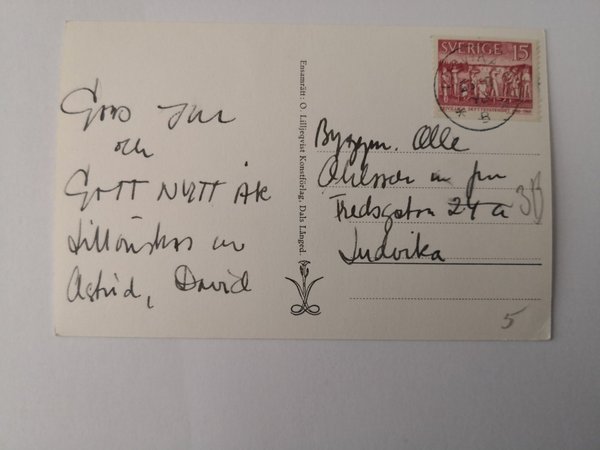 God Jul
och
GOTT NYTT ÅR
tillönskas av
Astrid, David
Ensamrätt: O. Lilljeqvist Konstförlag, Dals Långed.
SVERIGE 15
Byggm. Olle
m fru
Fredsgatan 24 a 3B
Ludvika
5